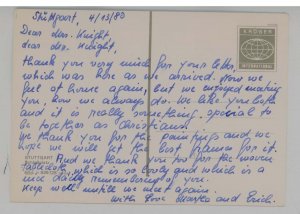 Stuttgart, 4/13/80
Dear Mrs. Knight,
dear Mr. Knight.
Thank you very much for your letter,
which was here as we arrived. Now we
feel at home again, but we enjoyed meeting
you, how we always do. We like you both
and it is really something special to
be together as Christians.
We thank you for the paintings and we
hope we will get the best frames for it.
And we thank you too for the woven
which is so lovely and which is a
nice daily remembering of you.
Keep well until we meet again.
With love Marta and Erich.
KRÜGER
INTERNATIONAL
STUTTGART